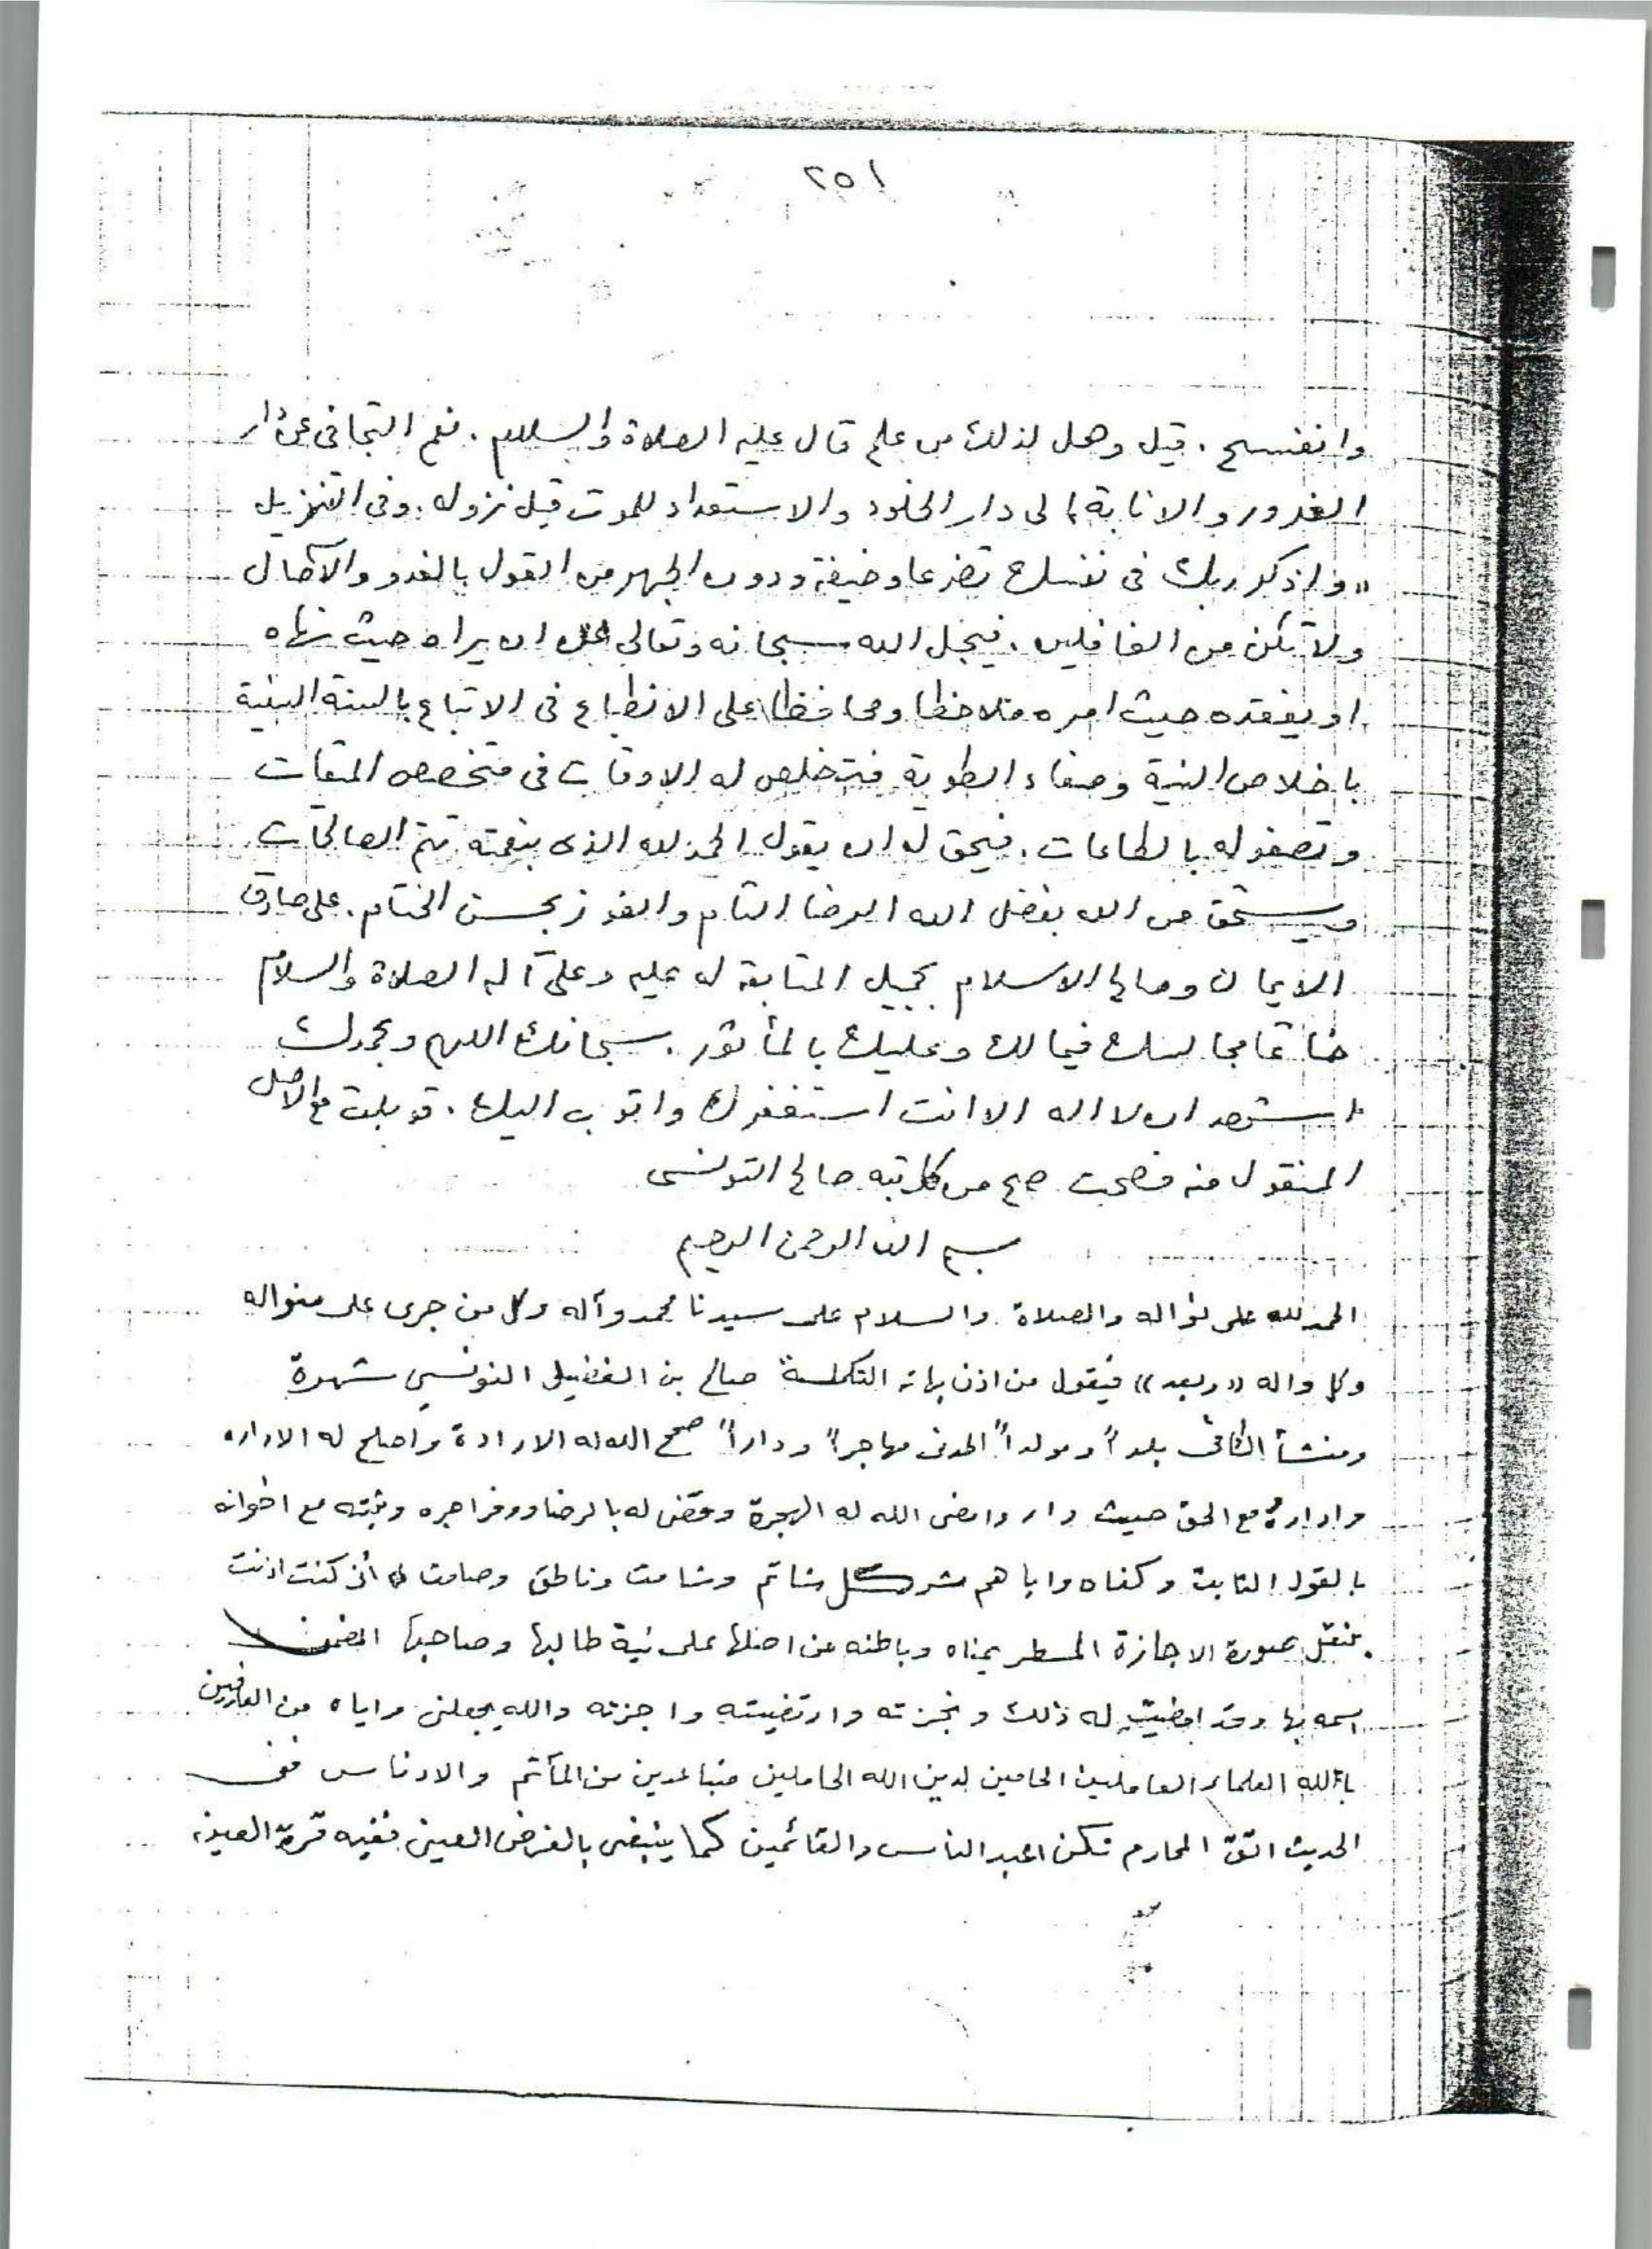 ٢٥١
وانفسح . قيل وهل لذلك من علم قال عليه الصلاة والسلام . نعم التجافى عن دار
الغرور والانابة الى دار الخلود والاستعداد للموت قبل نزوله . وفى التنزيل
« واذكر ربك فى نفسك تضرعا وخيفة ودون الجهر من القول بالغدو والآصال
ولا تكن من الغافلين . فيجل الله سبحانه وتعالى ان يراه حيث نهاه
او يفقده حيث امره ملاحظا ومحافظا على الانطباع فى الاتباع بالسنة السنية
باخلاص النية وصفاء الطوية فيتخلص له الاوقات فى
وتصفو له بالطاعات . فيحق له ان يقول الحمد لله الذى بنعمته تتم الصالحات
ويستحق من الله بفضل الله الرضا التام والفوز بحسن الختام . على صادق
الايمان وصالح الاسلام بجميل المتابعة له عليه وعلى آله الصلاة والسلام
خاتما مجالسك فيما لك وعليك بالمأثور . سبحانك اللهم وبحمدك
اشهد ان لا اله الا انت استغفرك واتوب اليك . قوبلت مع الاصل
المنقول منه فصحت صح من كاتبه صالح التونسى
بسم الله الرحمن الرحيم
الحمد لله على نواله والصلاة والسلام على سيدنا محمد وآله وكل من جرى على منواله
وكل واله «وبعد» فيقول من اذن بهاته التكملة صالح بن الفضيل التونسي شهرة
ومنشأ الكافى بلداً ومولداً المدنى مهاجراً وداراً صحح الله له الارادة واصلح له الاداره
واداره مع الحق حيث دار وامضى الله له الهجرة وقضى له بالرضا ووفر اجره وثبته مع اخوانه
بالقول الثابت وكفاه واياهم شر كل شاتم وشامت وناطق وصامت أنى كنت اذنت
بنقل صورة الاجازة المسطر يمناه وباطنه عن اصلها على نية طالبها وصاحبها المضمن
اسمه بها وقد امضيت له ذلك ونجزته وارتضيته واجزته والله يجعلنى واياه من العارفين
بالله العلماء العاملين الحامين لدين الله الحاملين متباعدين من المآثم والادناس ففى
الحديث اتق المحارم تكن اعبد الناس والقائمين كما ينبغى بالفرض العينى ففيه قرة العين